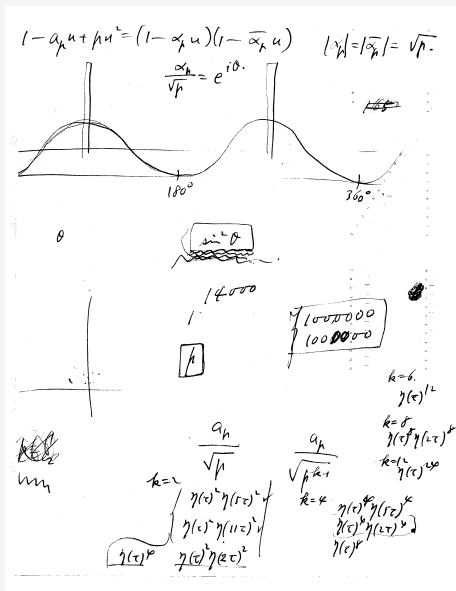 1 - aₚu + pu² = (1 - αₚu)(1 - ᾱₚu) |αₚ| = |ᾱₚ| = √p.
αₚ/√p = e^{iθ}.
180° 360°
θ
sin²θ
14000
1
1000000
1000000
p
k=6.
η(τ)¹²
k=8
η(τ)⁸η(2τ)⁸
k=12
η(τ)²⁴
aₚ/√p
aₚ/√p^{k-1}
k=2
η(τ)²η(5τ)²
η(τ)²η(11τ)²
η(τ)⁴ η(τ)²η(2τ)²
k=4
η(τ)⁴η(5τ)⁴
η(τ)⁴η(2τ)⁴
η(τ)⁸